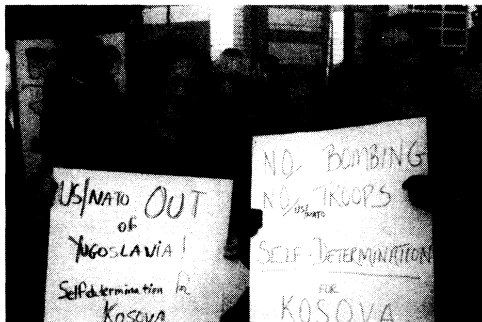 US/NATO OUT
of
YUGOSLAVIA!
Self determination for
KOSOVA
NO BOMBING
NO US/NATO TROOPS
SELF DETERMINATION
FOR
KOSOVA